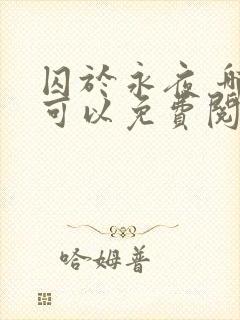 囚於永夜
可以免費閱
哈姆普